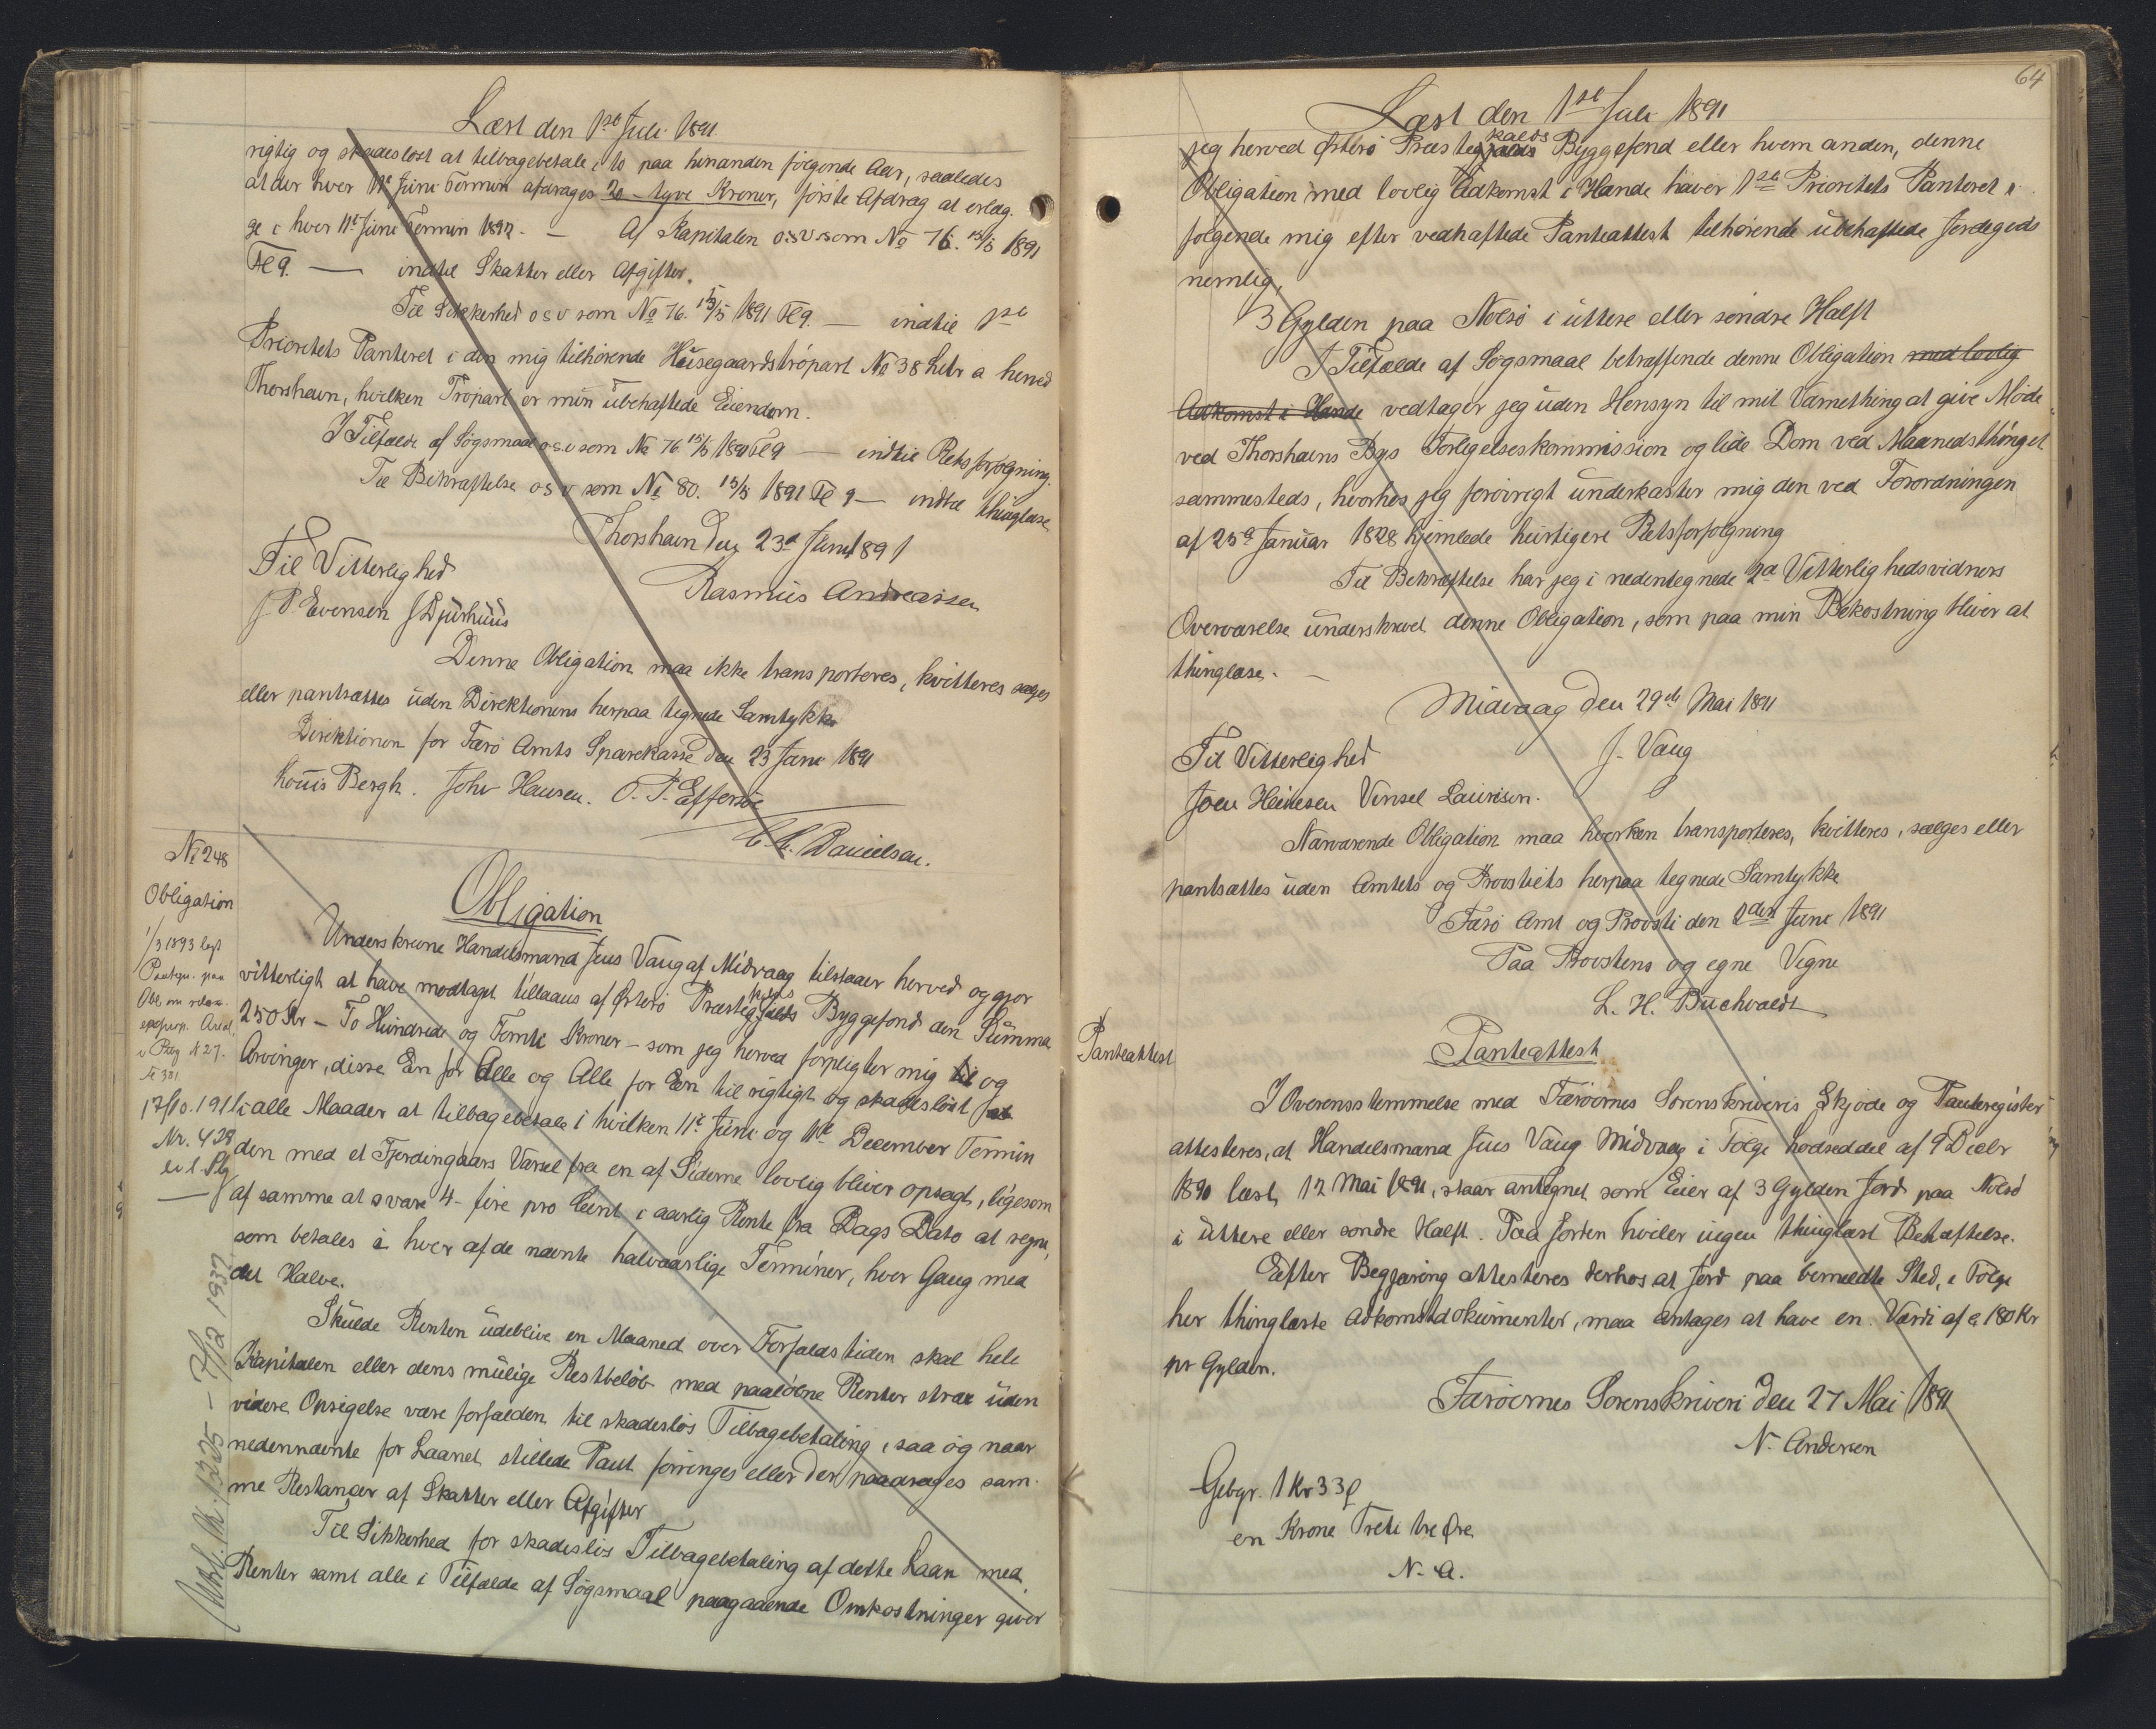 Læst den 1ste Juli 1891.
rigtig og skadesløst at tilbagebetale i 10 paa hinanden følgende Aar, saaledes
at der hver 11te Juni Termin afdrages 20 - tyve Kroner, første Afdrag at erlæg-
ge i hver 11te Juni Termin 1892. — Af Kapitalen o.s.v. som No 76. 13/5 1891
Fl 9. — indtil Skatter eller Afgifter.
Til Sikkerhed o s v som No 76. 13/5 1891 Fl 9. — indtil 1ste
Prioritets Panteret i den mig tilhørende Husegaardstrøpart No 38 Litr a herved
Thorshavn, hvilken Trøpart er min ubehæftede Eiendom.
I Tilfælde af Søgsmaal o.s.v som No 76 13/5 1891 Fl 9 — indtil Retsforfølgning.
Til Bekræftelse o s v som No 80. 13/5 1891 Fl 9 — indtil thinglæse
Thorshavn den 23d Juni 1891
Til Vitterlighed
Rasmus Andreassen
J P. Evensen J Djurhuus
Denne Obligation maa ikke transporteres, kvitteres sælges
eller pantsættes uden Direktionens herpaa tegnede Samtykke
Direktionen for Færø Amts Sparekasse den 23 Juni 1891
Louis Bergh. Johs Hansen. O. P. Effersøe
C. C. Danielsen.
No 248
Obligation
1/3 1893 lyst
Obligation
Underskrevne Handelsmand Jens Vaag af Midvaag tilstaaer herved og gjør
vitterligt at have modtaget tillaans af Østerø Præstegjælds kalds Byggefond den Summa
250 Kr - To Hundrede og Femti Kroner - som jeg herved forpligter mig til og
Arvinger, disse Een for Alle og Alle for Een til rigtigt og skadesløst at
i alle Maader at tilbagebetale i hvilken 11te Juni og 11te December Termin
17/10. 1911
Nr. 428
den med et Fjerdingaars Varsel fra en af Siderne lovlig bliver opsagt, ligesom
af samme at svare 4 - fire pro Cent i aarlig Rente fra Dags Dato at regne,
som betales i hver af de nævnte halvaarlige Terminer, hver Gang med
det Halve.
Skulde Renten udeblive en Maaned over Forfaldstiden skal hele
Kapitalen eller dens mulige Restbeløb med paaløbne Renter strax uden
videre Opsigelse være forfalden til skadesløs Tilbagebetaling, saa og naar
nedennævnte for Laanet stillede Pant forringes eller der paadrages sam-
me Restancer af Skatter eller Afgifter
Til Sikkerhed for skadesløs Tilbagebetaling af dette Laan med
Renter samt alle i Tilfælde af Søgsmaal paagaaende Omkostninger giver
64
Læst den 1ste Juli 1891
jeg herved Østerø Præstegjælds kalds Byggefond eller hvem anden, denne
Obligation med lovlig Adkomst i Hænde haver 1ste Prioritets Panteret i
følgende mig efter vedhæftede Panteattest tilhørende ubehæftede Jordegods
nemlig,
3 Gylden paa Nolsø i uttere eller søndre Halft
I Tilfælde af Søgsmaal betræffende denne Obligation med lovlig
Adkomst i Hænde vedtager jeg uden Hensyn til mit Værnething at give Møde
ved Thorshavns Byes Forligelseskommission og lide Dom ved Maanedsthinget
sammesteds, hvorhos jeg forøvrigt underkaster mig den ved Forordningen
af 25de Januar 1828 hjemlede hurtigere Retsforfølgning
Til Bekræftelse har jeg i nedentegnede 2de Vitterlighedsvidners
Overværelse underskrevet denne Obligation, som paa min Bekostning bliver at
thinglæse. —
Midvaag den 29de Mai 1891
Til Vitterlighed
J. Vaag
Joen Heinesen Vensel Lauridsen.
Nærværende Obligation maa hverken transporteres, kvitteres, sælges eller
pantsættes uden Amtets og Provstiets herpaa tegnede Samtykke
Færø Amt og Provsti den 2den Juni 1891
Paa Provstens og egne Vegne
L. H. Buchwaldt
Panteattest
Panteattest
I Overensstemmelse med Færøernes Sorenskriveris Skjøde og Panteregister
attesteres, at Handelsmand Jens Vaag Midvaag i Følge Lodseddel af 9 Decbr
1890 læst 12 Mai 1891, staar antegnet som Eier af 3 Gylden Jord paa Nolsø
i uttere eller søndre Halft. Paa Jorden hviler ingen thinglæst Behæftelse.
Efter Begjæring attesteres derhos at Jord paa bemeldte Sted, i Følge
her thinglæste Adkomstdokumenter, maa antages at have en Værdi af c. 180 Kr
pr Gylden.
Færøernes Sorenskriveri den 27 Mai 1891
N. Andersen
Gebyr. 1 Kr 33 Ø
en Krone Treti tre Øre
N. A.